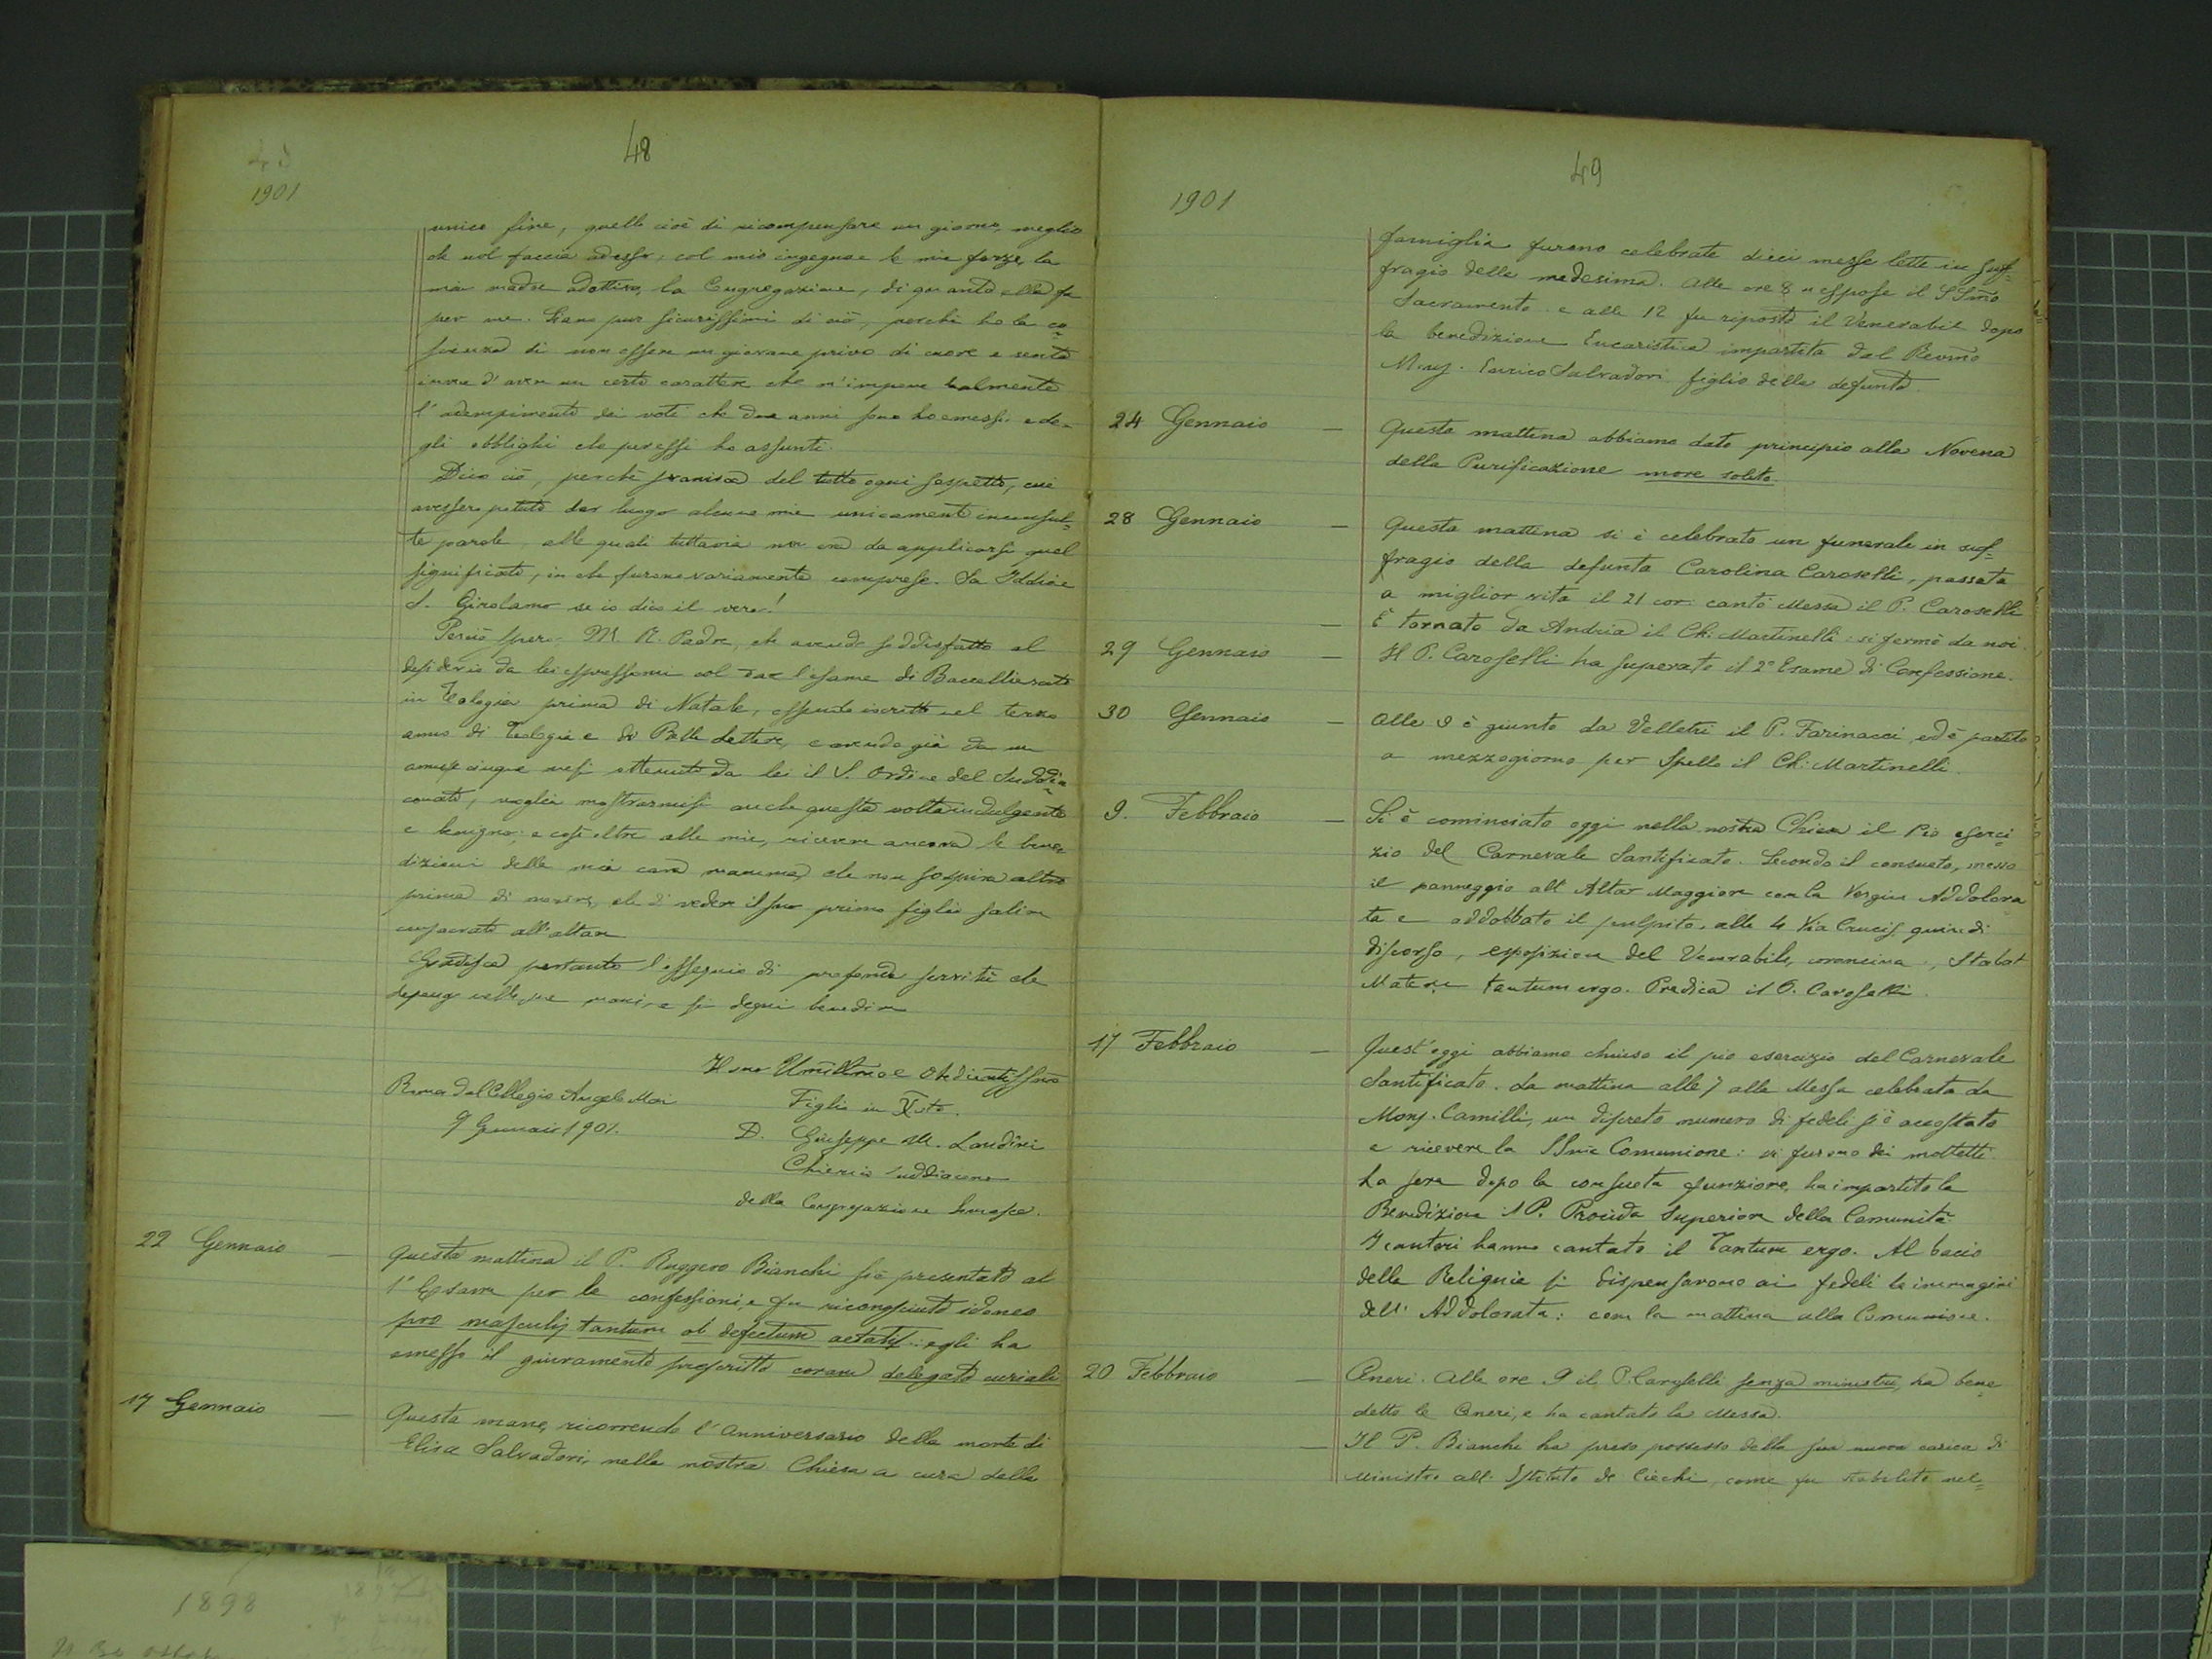 48
1901
unico fine, quello cioè di ricompensare un giorno, meglio
che nol faccia adesso, col mio ingegno e le mie forze, la
mia madre adottiva, la Congregazione, di quanto ella fa
per me. Siano pur sicurissimi di ciò, perchè ho la co=
scienza di non essere un giovane privo di cuore e sento
invece d'aver un certo carattere che m'impone
l'adempimento dei voti che due anni sono ho emessi e de=
gli obblighi che per essi ho assunti.
Dico ciò, perchè svanisca del tutto ogni sospetto, cui
avessero potuto dar luogo alcune mie unicamente inconsul=
te parole, alle quali tuttavia non era da applicarsi quel
significato, in che furono variamente comprese. Sa Iddio e
S. Girolamo se io dico il vero!
Perciò spero M. R. Padre, che avendo soddisfatto al
desiderio da lei espressomi col dar l'esame di Baccellierato
in Teologia prima di Natale, essendo iscritto nel terzo
anno di Teologia e di Belle Lettere, e avendo già da un
anno e cinque mesi ottenuto da lei il S. Ordine del Suddia=
conato, voglia mostrarmisi anche questa volta indulgente
e benigno; e così oltre alle mie, ricevere ancora le bene=
dizioni della mia cara mamma, che non sospira altro
prima di morire, che di vedere il suo primo figlio salire
consacrato all'altare
Gradisca pertanto l'ossequio di profonda servitù che
depongo nelle sue mani, e si degni benedire
Il suo Umillmo e Obedientissimo
Roma dal Collegio Angelo Mai
Figlio in Xsto.
9 Gennaio 1901.
D. Giuseppe M. Landini
Chierico Suddiacono
della Congregazione Somasca.
22 Gennaio — Questa mattina il P. Ruggero Bianchi si è presentato al
l'Esame per le confessioni e fu riconosciuto idoneo
pro masculis tantum ob defectum aetatis: egli ha
emesso il giuramento prescritto coram delegato curiali
17 Gennaio — Questa mane, ricorrendo l'anniversario della morte di
Elisa Salvadori, nella nostra Chiesa a cura della
49
1901
famiglia furono celebrate dieci messe lette in suf=
fragio della medesima. Alle ore 8 si espose il SSmo
Sacramento e alle 12 fu riposto il Venerabile dopo
la benedizione Eucaristica impartita dal Revmo
Mons. Enrico Salvadori figlio della defunta
24 Gennaio — Questa mattina abbiamo dato principio alla Novena
della Purificazione more solito.
28 Gennaio — Questa mattina si è celebrato un funerale in suf=
fragio della defunta Carolina Caroselli, passata
a miglior vita il 21 cor: cantò Messa il P. Caroselli
— È tornato da Andria il Ch: Martinelli: si fermò da noi.
29 Gennaio — Il P. Caroselli ha superato il 2° Esame di Confessione.
30 Gennaio — Alle 9 è giunto da Velletri il P. Farinacci, ed è partito
a mezzogiorno per Spello il Ch: Martinelli.
9. Febbraio — Si è cominciato oggi nella nostra Chiesa il Pio eserci=
zio del Carnevale Santificato. Secondo il consueto, messo
il panneggio all'Altar Maggiore con la Vergine Addolora
ta e addobbato il pulpito, alle 4 Via Crucis, quindi
discorso, esposizione del Venerabile, coroncina, Stabat
Mater e Tantum ergo. Predica il P. Caroselli.
17 Febbraio — Quest'oggi abbiamo chiuso il pio esercizio del Carnevale
Santificato. La mattina alle 7 alla Messa celebrata da
Mons. Camilli, un discreto numero di fedeli si è accostato
a ricevere la SSma Comunione: vi furono dei mottetti.
La sera dopo la consueta funzione, ha impartito la
Benedizione il P. Procida Superiore della Comunità
I cantori hanno cantato il Tantum ergo. Al bacio
della Reliquia si dispensarono ai fedeli le immagini
dell'Addolorata: com la mattina alla Comunione.
20 Febbraio — Ceneri. Alle ore 9 il P. Caroselli senza ministri, ha bene=
detto le Ceneri, e ha cantato la Messa.
— Il P. Bianchi ha preso possesso della sua nuova carica di
Ministro all'Istituto de' Ciechi, come fu stabilito nel=
1898